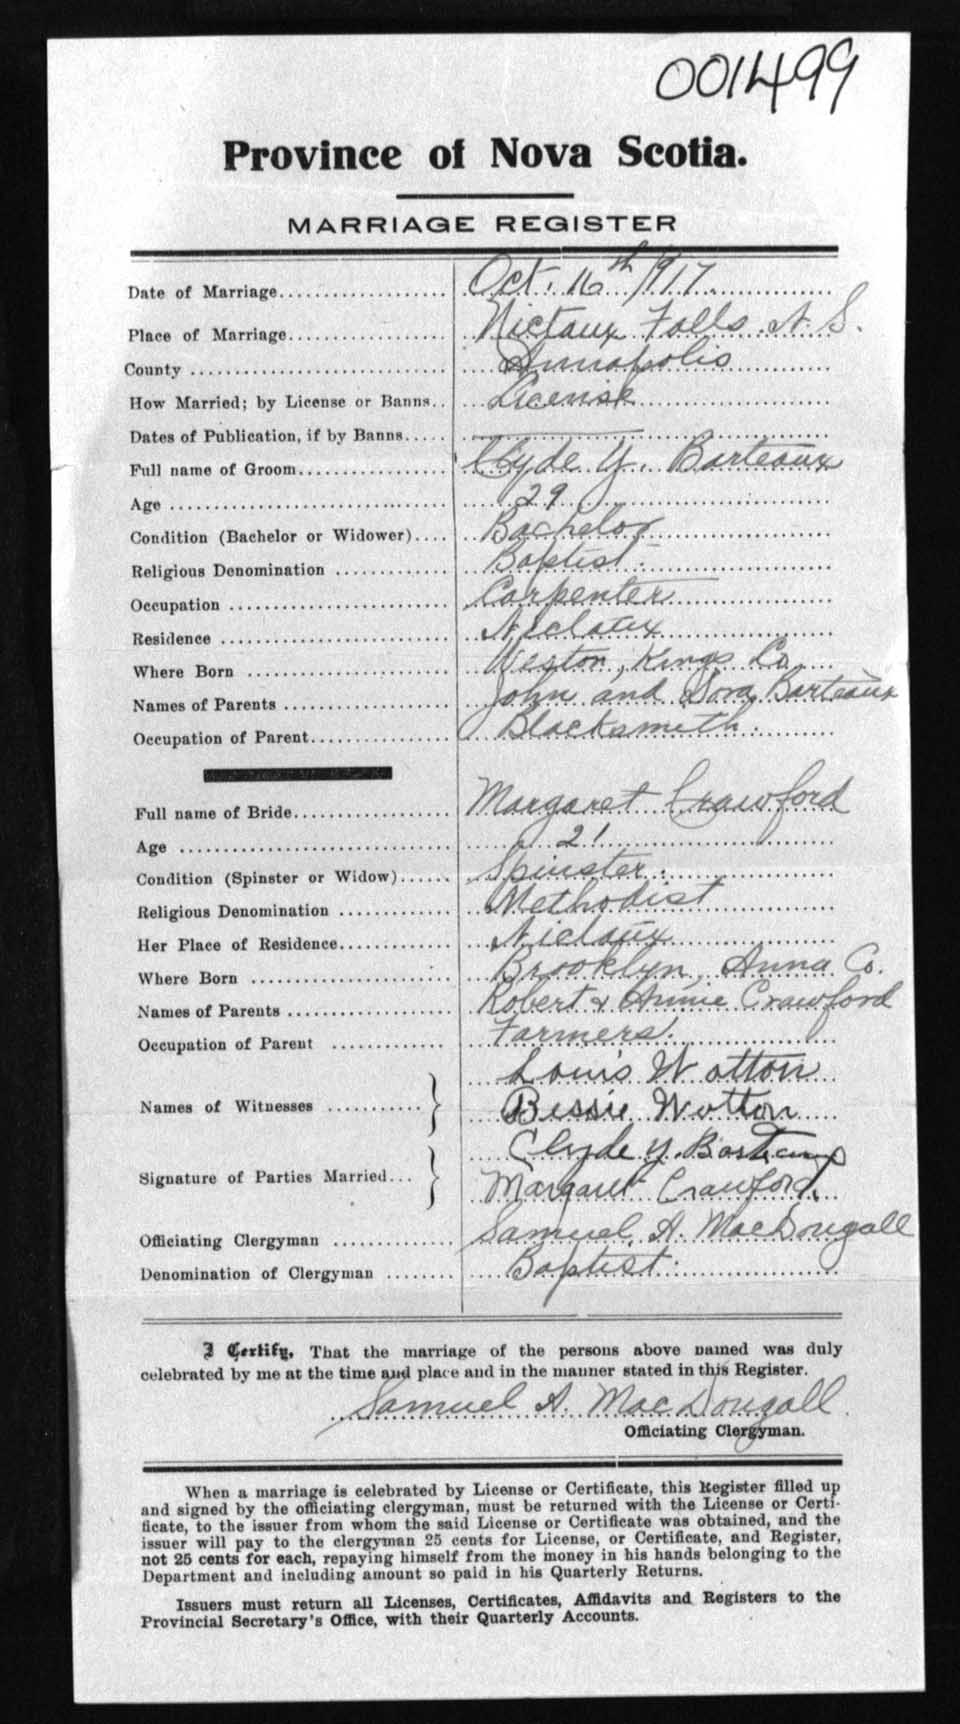 001499
Province of Nova Scotia.
MARRIAGE REGISTER
Date of Marriage.................... Oct. 16th 1917.
Place of Marriage.................. Nictaux Falls N. S.
County ............................. Annapolis
How Married; by License or Banns.. License
Dates of Publication, if by Banns..... ———
Full name of Groom................. Clyde Y. Barteaux
Age ................................ 29
Condition (Bachelor or Widower).... Bachelor
Religious Denomination ............ Baptist.
Occupation ......................... Carpenter
Residence .......................... Nictaux
Where Born ....................... Weston, Kings Co.
Names of Parents .................. John and Dora Barteaux
Occupation of Parent................ Blacksmith.
Full name of Bride.................. Margaret Crawford
Age ................................ 21
Condition (Spinster or Widow)...... Spinster.
Religious Denomination ............ Methodist
Her Place of Residence............. Nictaux
Where Born ....................... Brooklyn, Anna Co.
Names of Parents .................. Robert & Annie Crawford
Occupation of Parent ............. Farmers.
Louis Wotton
Names of Witnesses ........... Bessie Wotton
Clyde Y. Barteaux
Signature of Parties Married... Margaret Crawford
Officiating Clergyman .............. Samuel A. MacDougall
Denomination of Clergyman ........ Baptist.
I Certify, That the marriage of the persons above named was duly
celebrated by me at the time and place and in the manner stated in this Register.
Samuel A. MacDougall.
Officiating Clergyman.
When a marriage is celebrated by License or Certificate, this Register filled up
and signed by the officiating clergyman, must be returned with the License or Certi-
ficate, to the issuer from whom the said License or Certificate was obtained, and the
issuer will pay to the clergyman 25 cents for License, or Certificate, and Register,
not 25 cents for each, repaying himself from the money in his hands belonging to the
Department and including amount so paid in his Quarterly Returns.
Issuers must return all Licenses, Certificates, Affidavits and Registers to the
Provincial Secretary's Office, with their Quarterly Accounts.